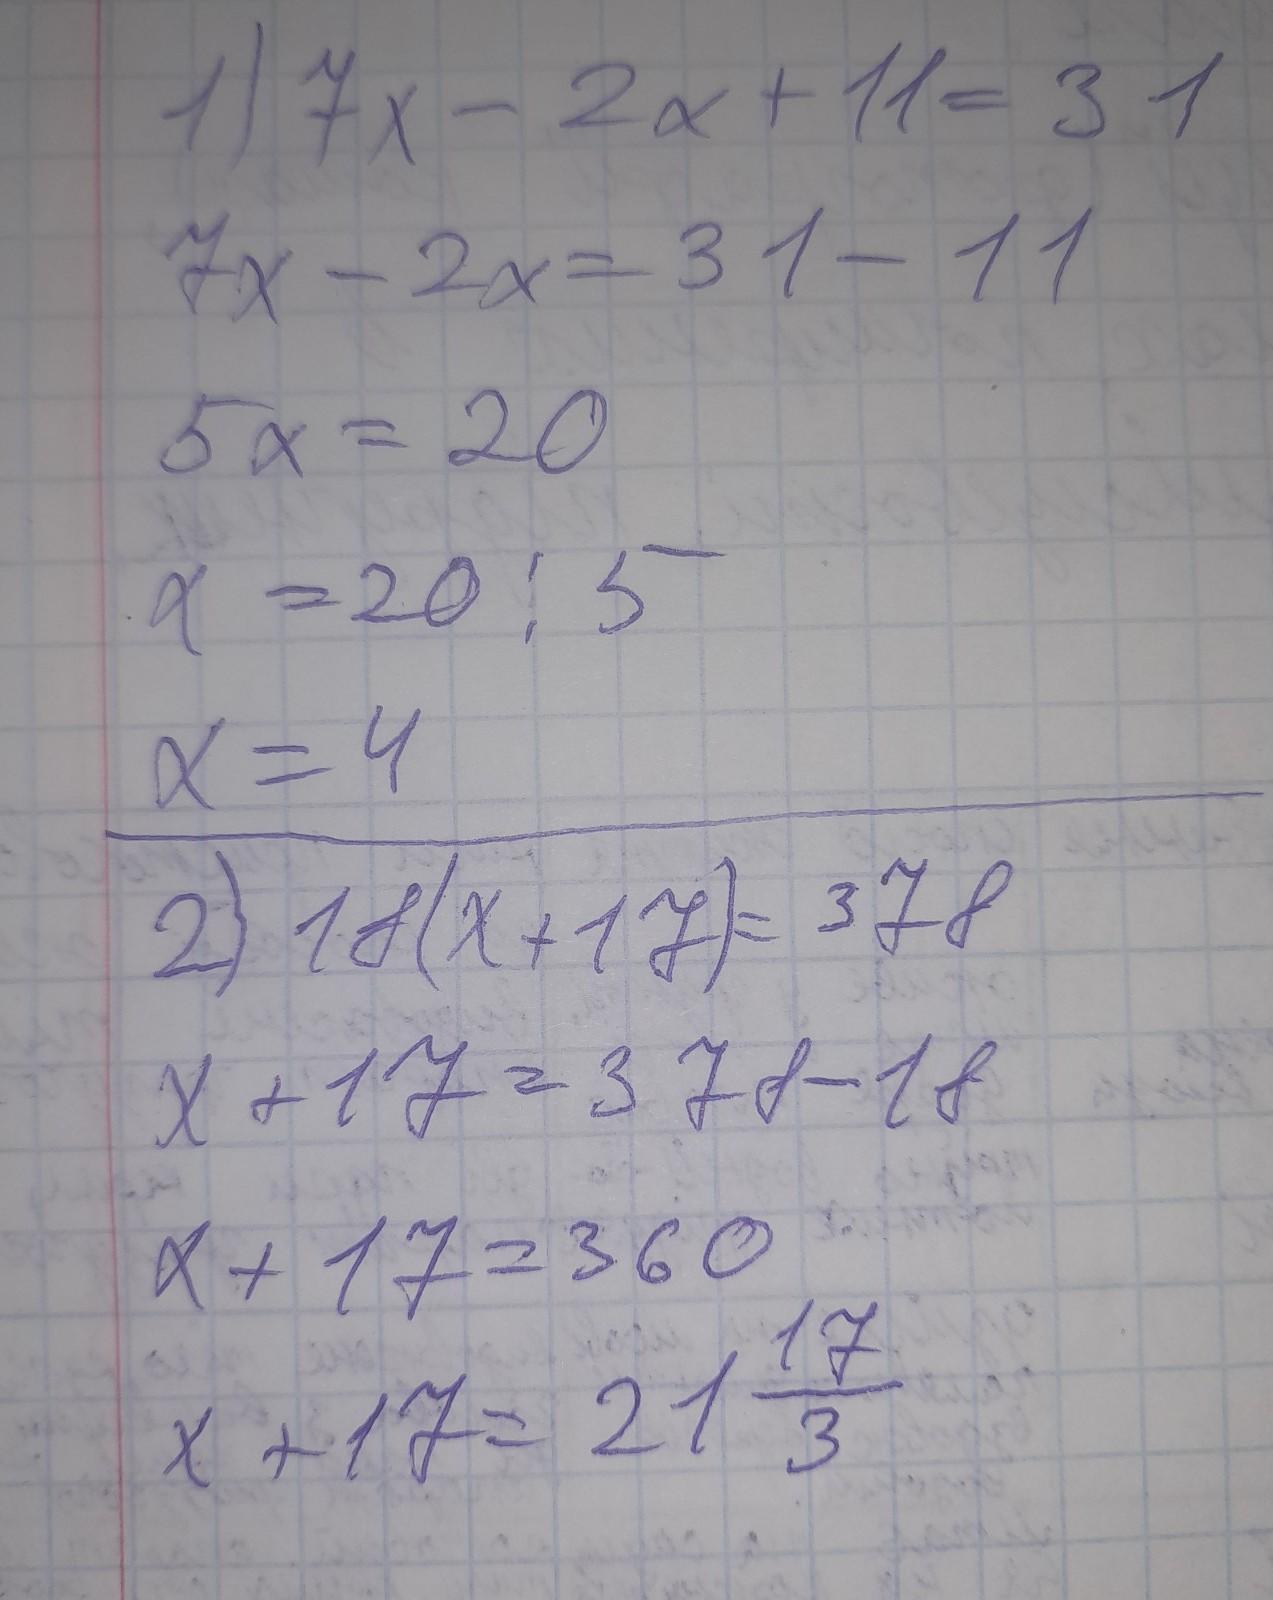 1) 7x - 2x + 11 = 31
7x - 2x = 31 - 11
5x = 20
x = 20 : 5
x = 4
2) 18(x + 17) = 378
x + 17 = 378 - 18
x + 17 = 360
x + 17 = 21 17/3